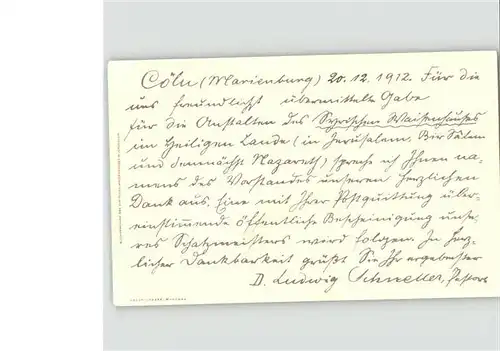 Cöln (Marienburg) 20.12.1912. Für die
uns freundlichst übermittelte Gabe
für die Anstalten des Syrischen Waisenhauses
im Heiligen Lande (in Jerusalem, Bir Salem
und demnächst Nazareth) spreche ich Ihnen na-
mens des Vorstandes unseren herzlichen
Dank aus. Eine mit Ihrer Postquittung über-
einstimmende öffentliche Bescheinigung unse-
res Schatzmeisters wird folgen. In herz-
licher Dankbarkeit grüßt Sie Ihr ergebenster
D. Ludwig Schneller, Pastor.